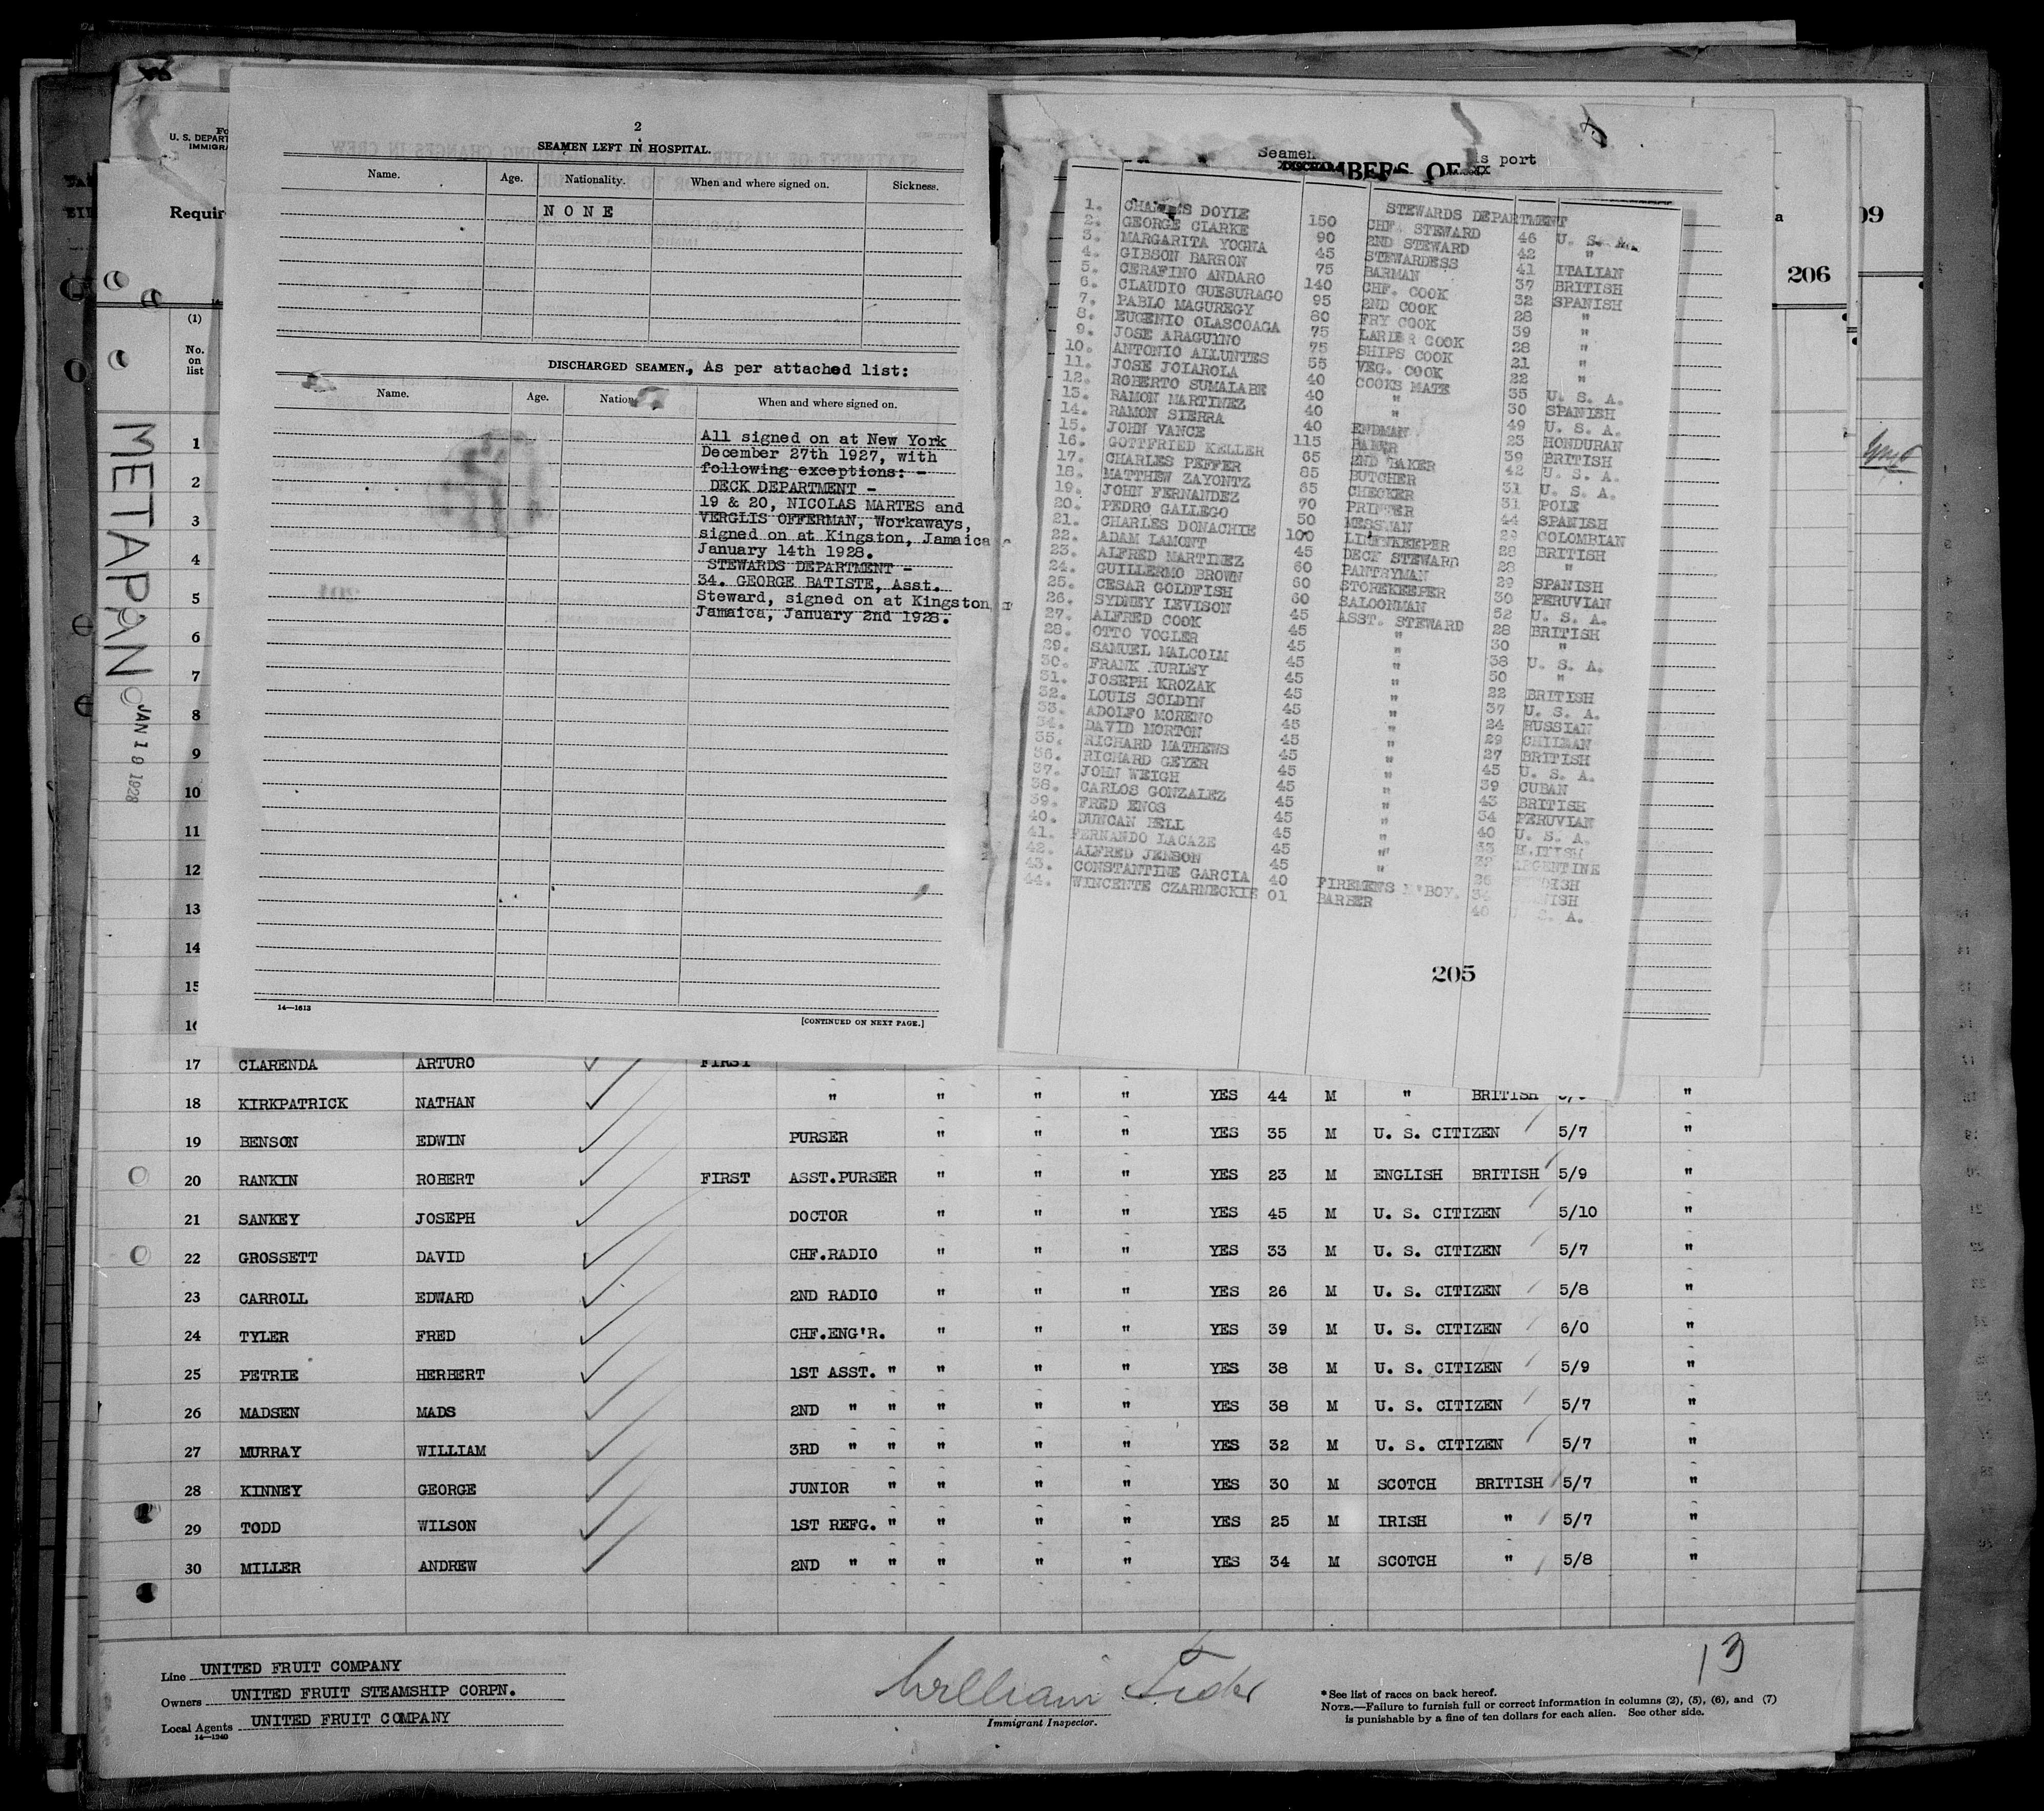 2
SEAMEN LEFT IN HOSPITAL.
Name. Age. Nationality. When and where signed on. Sickness.
N O N E
DISCHARGED SEAMEN, As per attached list:
Name. Age. When and where signed on.
All signed on at New York
December 27th 1927, with
following exceptions: -
DECK DEPARTMENT -
19 & 20, NICOLAS MARTES and
VERGLIS OFFERMAN, Workaways,
signed on at Kingston, Jamaica
January 14th 1928.
STEWARDS DEPARTMENT -
34. GEORGE BATISTE, Asst.
Steward, signed on at Kingston,
Jamaica, January 2nd 1928.
14—1613
[CONTINUED ON NEXT PAGE.]
U. S. DEPART
IMMIGRA
Requir
(1)
No.
on
list
METAPAN
JAN 1 9 1928
1
2
3
4
5
6
7
8
9
10
11
12
13
14
15
Seamen is port
MBERS OF
STEWARDS DEPARTMENT
1. CHARLES DOYLE 150 CHF. STEWARD 46 U. S. A.
2. GEORGE CLARKE 90 2ND STEWARD 42 "
3. MARGARITA YOGNA 45 STEWARDESS 41 ITALIAN
4. GIBSON BARRON 75 BARMAN 37 BRITISH
5. CERAFINO ANDARO 140 CHF. COOK 32 SPANISH
6. CLAUDIO GUESURAGO 95 2ND COOK 28 "
7. PABLO MAGUREGY 80 FRY COOK 39 "
8. EUGENIO OLASCOAGA 75 LARDER COOK 28 "
9. JOSE ARAGUINO 75 SHIPS COOK 21 "
10. ANTONIO ALLUNTES 55 VEG. COOK 22 "
11. JOSE JOIAROLA 40 COOKS MATE 35 U. S. A.
12. ROBERTO SUMALABE 40 " 30 SPANISH
13. RAMON MARTINEZ 40 " 49 U. S. A.
14. RAMON SIERRA 40 ENDMAN 23 HONDURAN
15. JOHN VANCE 115 BAKER 39 BRITISH
16. GOTTFRIED KELLER 65 2ND BAKER 42 U. S. A.
17. CHARLES PEFFER 85 BUTCHER 31 U. S. A.
18. MATTHEW ZAYONTZ 65 CHECKER 31 POLE
19. JOHN FERNANDEZ 70 PRINTER 44 SPANISH
20. PEDRO GALLEGO 50 MESSMAN 29 COLOMBIAN
21. CHARLES DONACHIE 100 LINENKEEPER 28 BRITISH
22. ADAM LAMONT 45 DECK STEWARD 28 "
23. ALFRED MARTINEZ 60 PANTRYMAN 29 SPANISH
24. GUILLERMO BROWN 60 STOREKEEPER 30 PERUVIAN
25. CESAR GOLDFISH 60 SALOONMAN 52 U. S. A.
26. SYDNEY LEVISON 45 ASST. STEWARD 28 BRITISH
27. ALFRED COOK 45 " 30 "
28. OTTO VOGLER 45 " 38 U. S. A.
29. SAMUEL MALCOLM 45 " 50 "
30. FRANK HURLEY 45 " 22 BRITISH
31. JOSEPH KROZAK 45 " 37 U. S. A.
32. LOUIS SOLDIN 45 " 24 RUSSIAN
33. ADOLFO MORENO 45 " 29 CHILEAN
34. DAVID MORTON 45 " 27 BRITISH
35. RICHARD MATHEWS 45 " 45 U. S. A.
36. RICHARD GEYER 45 " 39 CUBAN
37. JOHN WEIGH 45 " 43 BRITISH
38. CARLOS GONZALEZ 45 " 34 PERUVIAN
39. FRED ENOS 45 " 40 U. S. A.
40. DUNCAN BELL 45 " 33 BRITISH
41. FERNANDO LACAZE 45 " ARGENTINE
42. ALFRED JENSON 45 " 26
43. CONSTANTINE GARCIA 40 FIREMENS M'BOY.
44. WINCENTE CZARNECKIE 01 BARBER 40 U. S. A.
205
206
09
17 CLARENDA ARTURO FIRST
18 KIRKPATRICK NATHAN " " " " YES 44 M " BRITISH "
19 BENSON EDWIN PURSER " " " YES 35 M U. S. CITIZEN 5/7 "
20 RANKIN ROBERT FIRST ASST.PURSER " " " YES 23 M ENGLISH BRITISH 5/9 "
21 SANKEY JOSEPH DOCTOR " " " YES 45 M U. S. CITIZEN 5/10 "
22 GROSSETT DAVID CHF.RADIO " " " YES 33 M U. S. CITIZEN 5/7 "
23 CARROLL EDWARD 2ND RADIO " " " YES 26 M U. S. CITIZEN 5/8 "
24 TYLER FRED CHF.ENG'R. " " " YES 39 M U. S. CITIZEN 6/0 "
25 PETRIE HERBERT 1ST ASST. " " " " YES 38 M U. S. CITIZEN 5/9 "
26 MADSEN MADS 2ND " " " " " YES 38 M U. S. CITIZEN 5/7 "
27 MURRAY WILLIAM 3RD " " " " " YES 32 M U. S. CITIZEN 5/7 "
28 KINNEY GEORGE JUNIOR " " " " YES 30 M SCOTCH BRITISH 5/7 "
29 TODD WILSON 1ST REFG. " " " " YES 25 M IRISH " 5/7 "
30 MILLER ANDREW 2ND " " " " " YES 34 M SCOTCH " 5/8 "
13
Line UNITED FRUIT COMPANY
Owners UNITED FRUIT STEAMSHIP CORPN.
Local Agents UNITED FRUIT COMPANY
14—1240
William
Immigrant Inspector.
* See list of races on back hereof.
NOTE.—Failure to furnish full or correct information in columns (2), (5), (6), and (7)
is punishable by a fine of ten dollars for each alien. See other side.